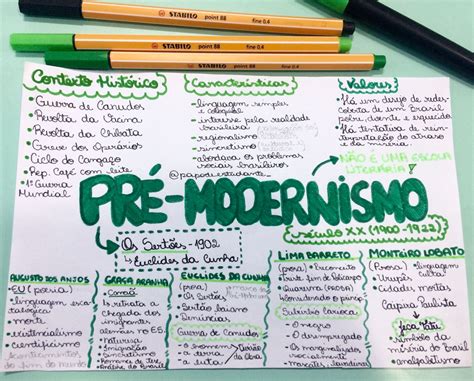 STABILO point 88 fine 0.4
STABILO point 88 fine 0.4
STABILO point 88 fine 0.4
Contexto Histórico
• Guerra de Canudos
• Revolta da Vacina
• Revolta da Chibata
• Greve dos Operários
• Ciclo do Cangaço
• Rep. Café com leite
• 1ª Guerra
Mundial
Características
- linguagem simples e
coloquial
- interesse pela realidade
brasileira
- regionalismo
- sincretismo
- abordava os problemas
sociais brasileiros
@papodeestudante
Valores
• Há um desejo de redes-
coberta de um Brasil
pobre, doente e esquecido
• Há tentativa de rein-
terpretação do atraso
e da miséria
NÃO É UMA ESCOLA
LITERÁRIA
PRÉ-MODERNISMO
século XX (1900-1922)
Os Sertões - 1902
Euclides da Cunha
AUGUSTO DOS ANJOS
• EU (poesia)
• linguagem esca-
tológica
• morte
• existencialismo
• cientificismo
do fim do mundo
GRAÇA ARANHA
Canaã
• Retrata a
chegada dos
imigrantes
alemães no ES.
• Natureza
• Imigração
EUCLIDES DA CUNHA
(prosa)
• Os Sertões
• Sertão baiano
• Denúncias
Guerra de Canudos
• o homem
• a terra
• a luta
LIMA BARRETO
(prosa) • Preconceito
• Triste fim de Policarpo
Quaresma (PROSA)
Subúrbio Carioca
• o negro
• O desempregado
• Os marginalizados
socialmente
MONTEIRO LOBATO
(Prosa) • Urupês
• Cidades mortas
Caipira Paulista
Jeca Tatu
• símbolo da
miséria do Brasil